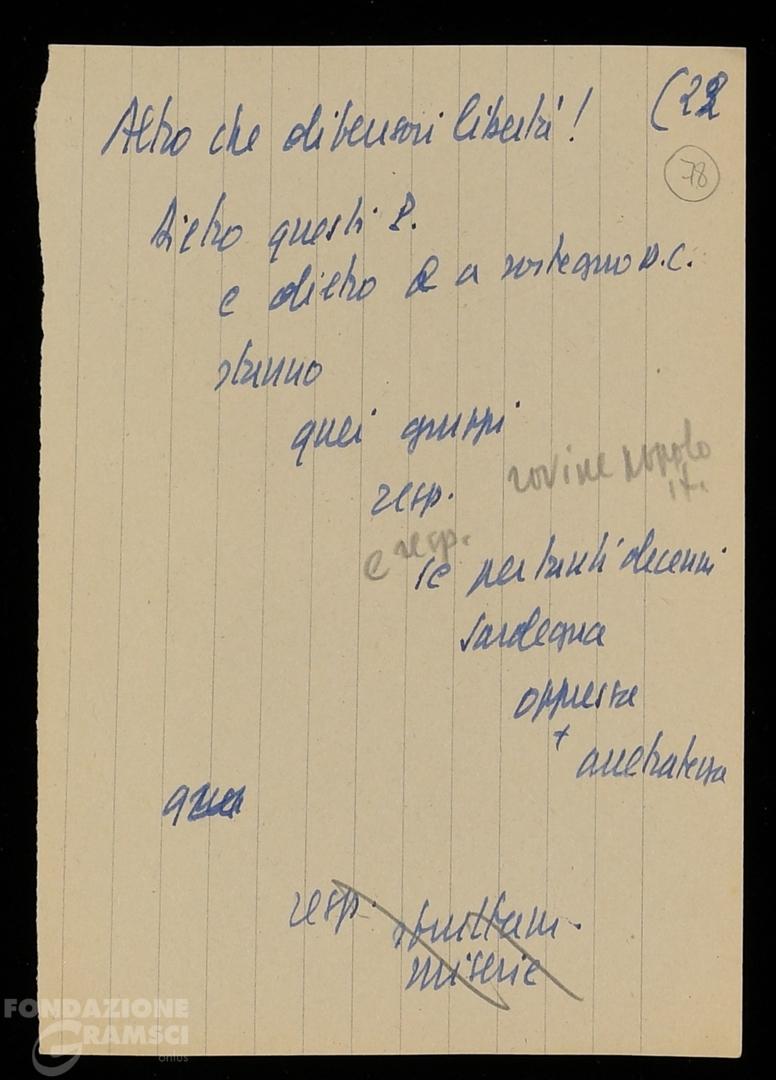 (22
Altro che difensori libertà!
78
Dietro questi P.
e dietro a sostegno D.C.
stanno
quei gruppi
resp. rovine popolo
it.
e resp.
se per tanti decenni
Sardegna
oppressa
+ arretratezza
resp. sfruttam.
miserie
FONDAZIONE
GRAMSCI
onlus